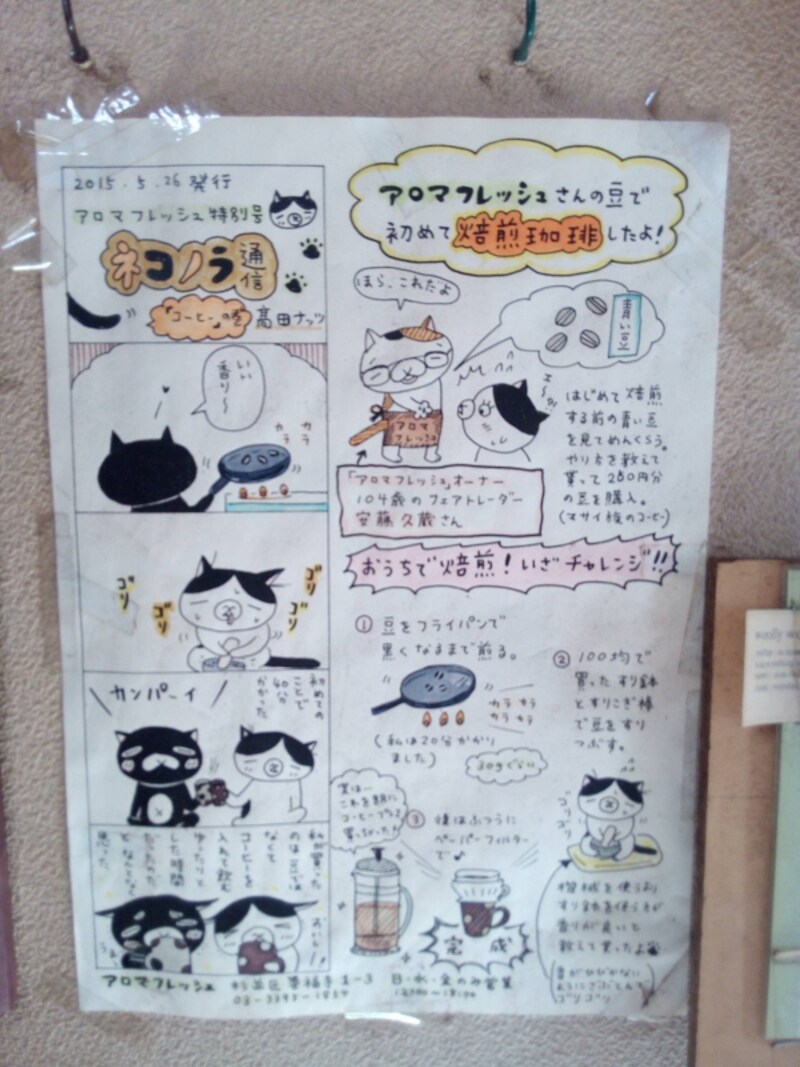 2015.5.26 発行
アロマフレッシュ特別号
ネコノラ通信
「コーヒー」の巻
高田ナッツ
いい
香り〜
カラ
カラ
ゴリ
ゴリ
ゴリ
ゴリ
カンパーイ
初めての
ことで
40分
かかった
私が買った
のは豆では
なくて
コーヒーを
入れて飲む
ゆったりと
した時間
だったのだ
と なんとなく
思った。
おいしー!!
アロマフレッシュさんの豆で
初めて焙煎珈琲したよ!
ほら、これだよ
青い豆
アロマ
フレッシュ
はじめて焙煎
する前の青い豆
を見てめんくらう。
やり方を教えて
貰って280円分
の豆を購入。
(マサイ族のコーヒー)
「アロマフレッシュ」オーナー
104歳のフェアトレーダー
安藤久蔵さん
おうちで焙煎!いざチャレンジ!!
① 豆をフライパンで
黒くなるまで煎る。
カラカラ
カラカラ
(私は20分かかり
ました)
30gぐらい
② 100均で
買ったすり鉢
とすりこぎ棒
で豆をすり
つぶす。
ゴリゴリ
実は…
これを期に
③ 後はふつうに
ペーパーフィルター
で♪
完成
機械を使うより
すり鉢を使う方が
香りが良いと
教えて貰ったよ
音がひびかない
ようにざぶとんで
ゴリゴリ
アロマフレッシュ 杉並区 1-3 日・水・金のみ営業